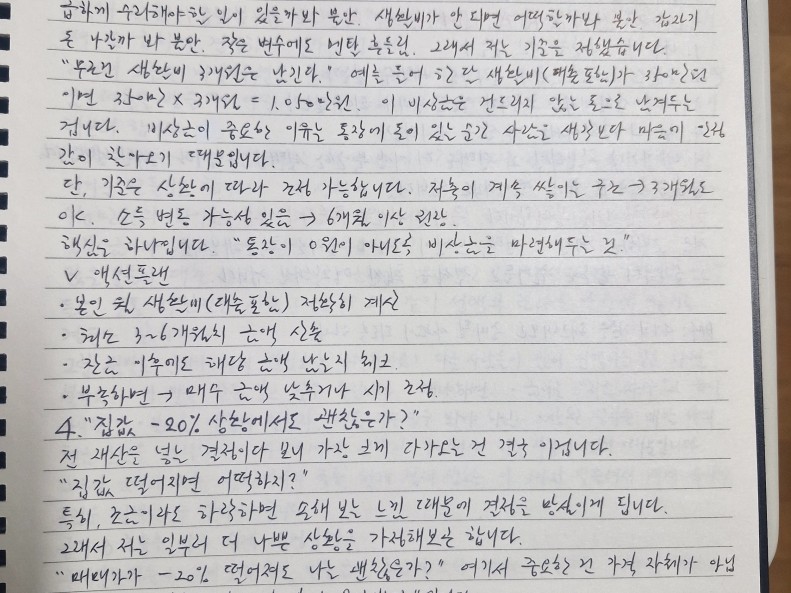 급하게 수리해야할 일이 있을까봐 불안. 생활비가 안 되면 어떡할까봐 불안. 갑자기
돈 나갈까 봐 불안. 작은 변수에도 멘탈 흔들림. 그래서 저는 기준을 정했습니다.
"무조건 생활비 3개월은 남긴다." 예를 들어 한 달 생활비(대출포함)가 350만원
이면 350만 × 3개월 = 1,050만원. 이 비상금은 건드리지 않는 돈으로 남겨두는
겁니다. 비상금이 중요한 이유는 통장에 돈이 있는 순간 사람은 생각보다 마음에 안정
감이 찾아오기 때문입니다.
단, 기준은 상황에 따라 조정 가능합니다. 저축이 계속 쌓이는 구조 → 3개월도
OK. 소득 변동 가능성 있음 → 6개월 이상 권장.
핵심은 하나입니다. "통장이 0원이 아니도록 비상금을 마련해두는 것."
V 액션플랜
· 본인 월 생활비(대출포함) 정확히 계산
· 최소 3~6개월치 금액 산출
· 잔금 이후에도 해당 금액 남는지 체크.
· 부족하면 → 매수 금액 낮추거나 시기 조정.
4. "집값 -20% 상황에서도 괜찮은가?"
전 재산을 넣는 결정이다 보니 가장 크게 다가오는 건 결국 이겁니다.
"집값 떨어지면 어떡하지?"
특히, 조금이라도 하락하면 손해 보는 느낌 때문에 결정을 망설이게 됩니다.
그래서 저는 일부러 더 나쁜 상황을 가정해보곤 합니다.
"매매가가 -20% 떨어져도 나는 괜찮은가?" 여기서 중요한 건 가격 자체가 아닙